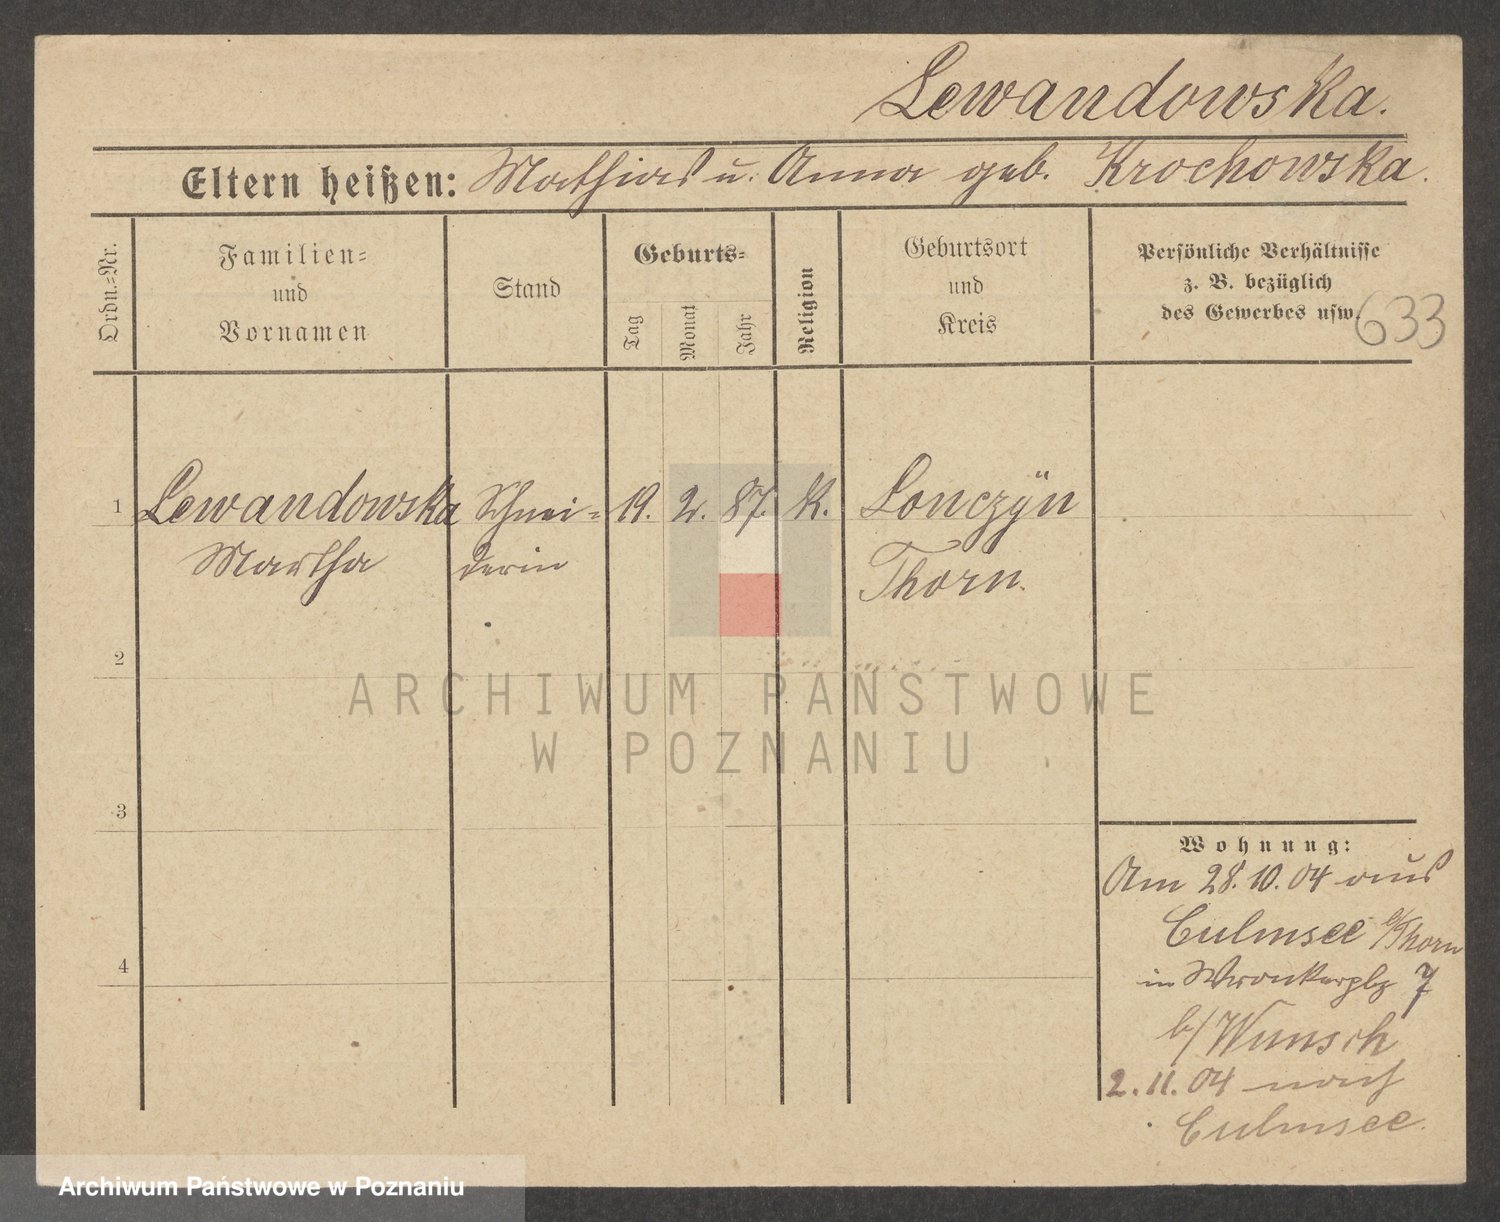 Lewandowska.
Eltern heißen: Mathias u. Anna geb. Krochowska.
Ordn.=Nr.
Familien=
und
Vornamen
Stand
Geburts=
Tag
Monat
Jahr
Religion
Geburtsort
und
Kreis
Persönliche Verhältnisse
z. B. bezüglich
des Gewerbes usw.
633
1 Lewandowska Schnei= 19. 2. 87. K. Lonczÿn
Martha derin Thorn.
2
ARCHIWUM PAŃSTWOWE
W POZNANIU
3
Wohnung:
Am 28.10.04 aus
Culmsee b/Thorn
4
in Wronkerplz 7
b/Wunsch
2.11.04 nach
Culmsee.
Archiwum Państwowe w Poznaniu